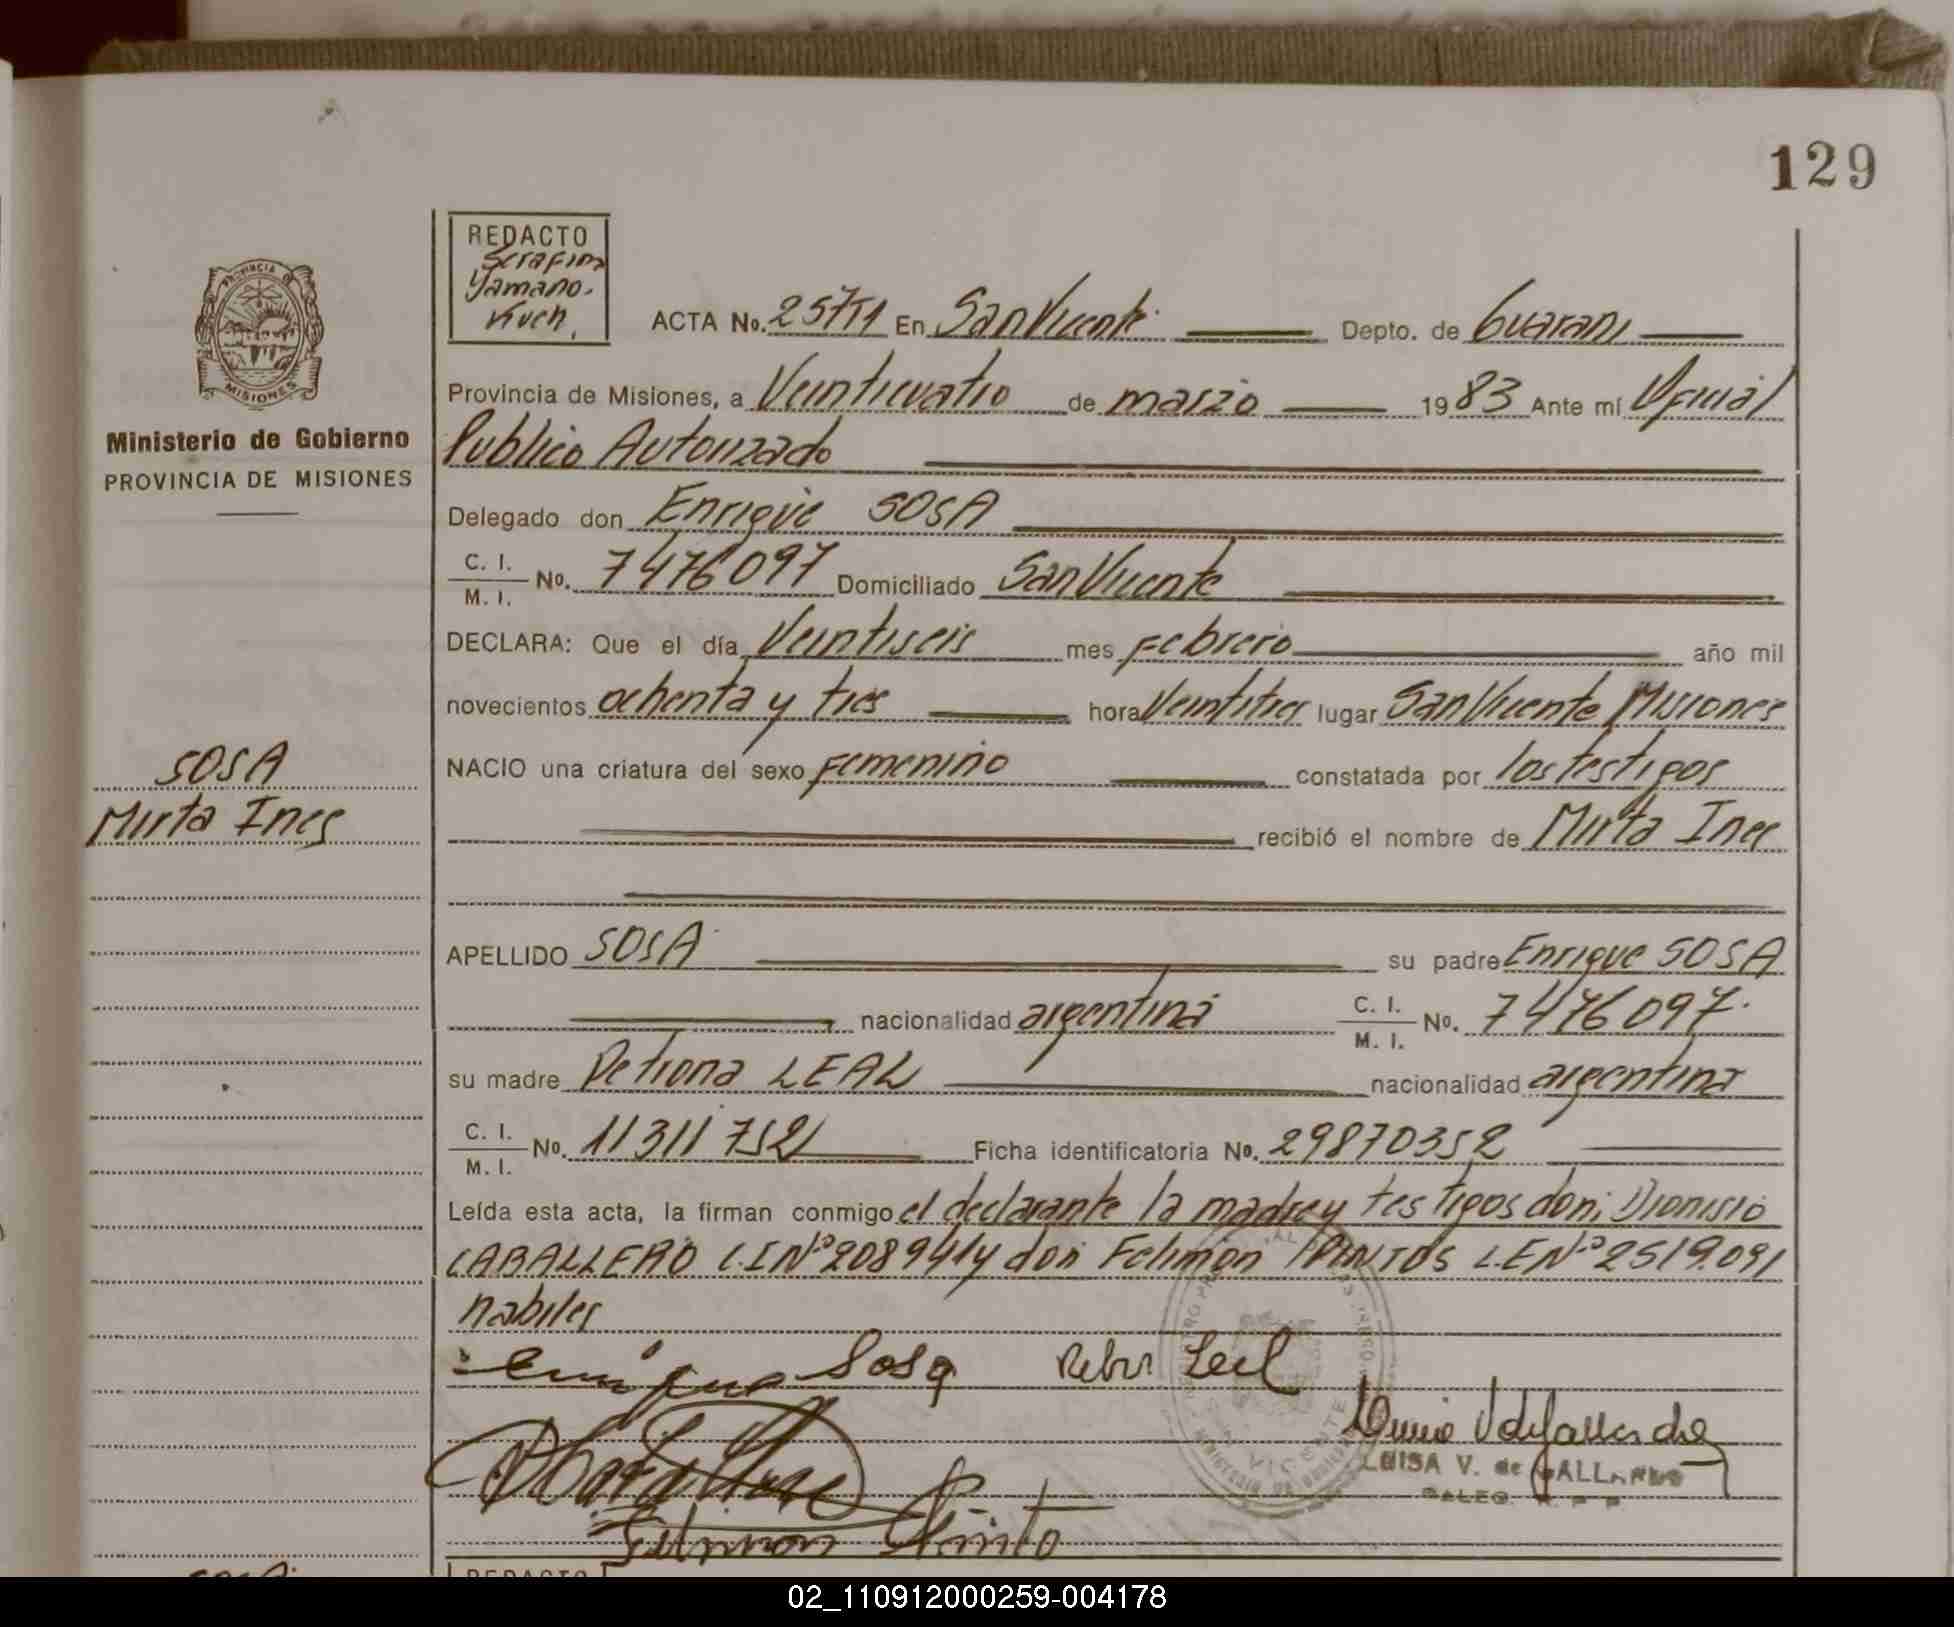 129
REDACTO
Serafina
Yamano.
Kuch.
ACTA No. 257T1 En San Vicente Depto. de Guarani
PROVINCIA
MISIONES
Ministerio de Gobierno
PROVINCIA DE MISIONES
Provincia de Misiones, a Veinticuatro de marzo 19 83 Ante mí Oficial
Publico Autorizado
Delegado don Enrique SOSA
C. I.
M. I. No. 7476097 Domiciliado San Vicente
DECLARA: Que el día Veintiseis mes Febrero año mil
novecientos ochenta y tres hora Veintitres lugar San Vicente Misiones
NACIO una criatura del sexo Femenino constatada por los testigos
recibió el nombre de Mirta Ines
SOSA
Mirta Ines
APELLIDO SOSA su padre Enrique SOSA
nacionalidad argentina C. I.
M. I. No. 7476097.
su madre Petrona LEAL nacionalidad argentina
C. I.
M. I. No. 11311752 Ficha identificatoria No. 29870352
Leída esta acta, la firman conmigo el declarante la madre y testigos don; Dionisio
CABALLERO L.I Nº 208941 y don Felimon PINTOS L.E Nº 2519.091
habiles
Enrique Sosa Leal
LUISA V. de GALLARDO
Felimon Pinto
VICENTE
REDACTO
02_110912000259-004178